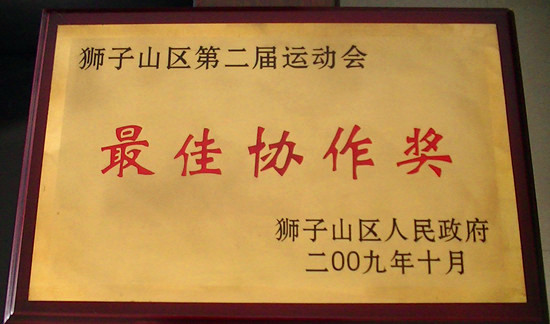 狮子山区第二届运动会
最佳协作奖
狮子山区人民政府
二00九年十月